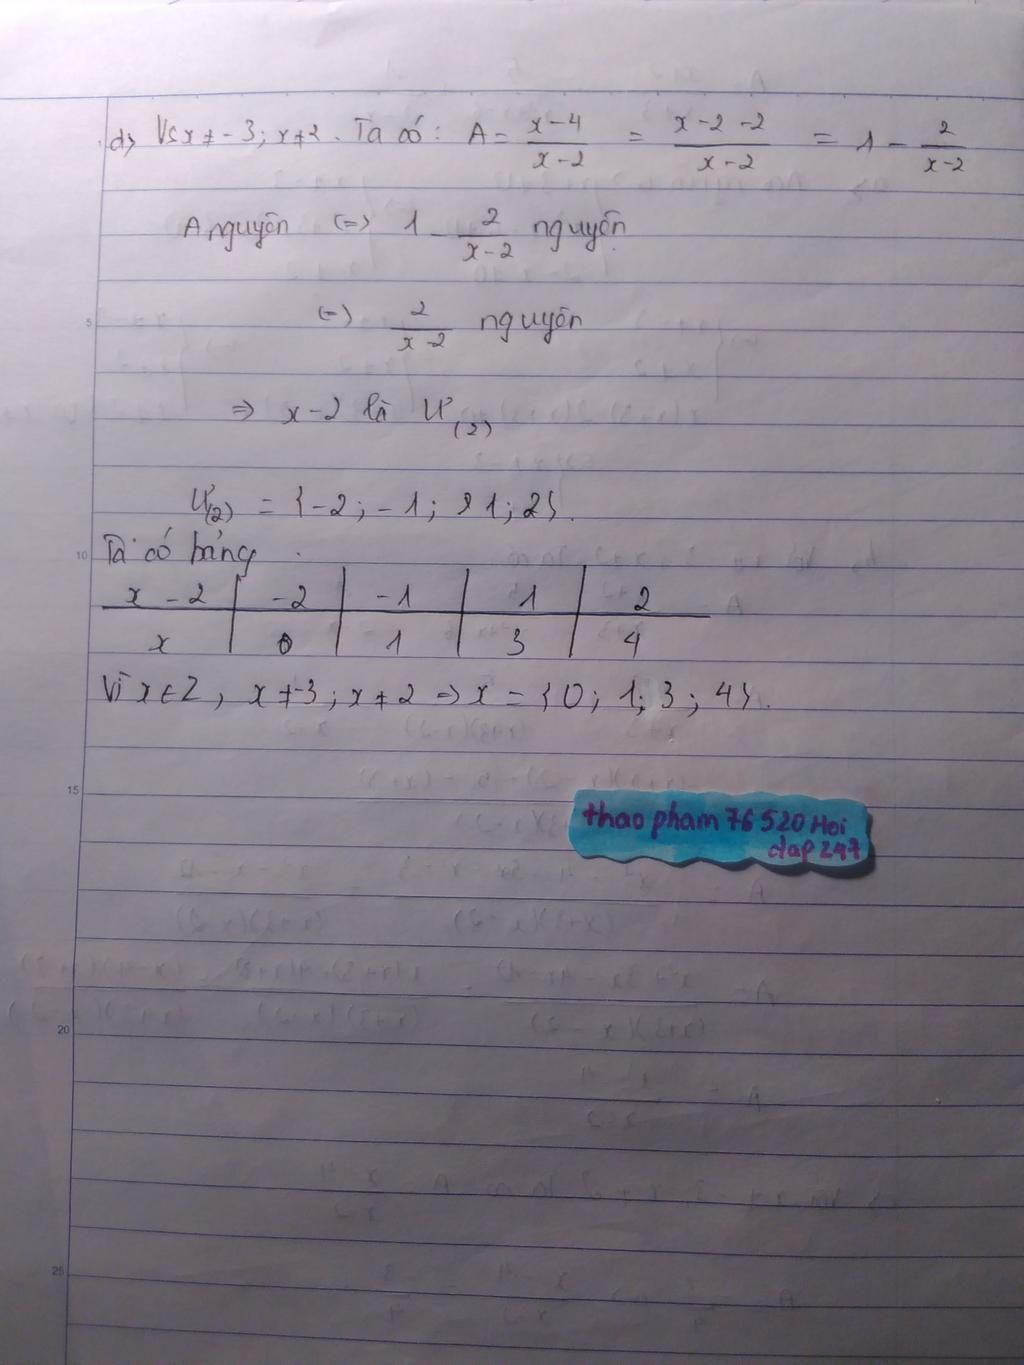 d> Vs x ≠ -3; x ≠ 2. Ta có: A = x-4/x-2 = x-2-2/x-2 = 1 - 2/x-2
A nguyên <=> 1 - 2/x-2 nguyên
<=> 2/x-2 nguyên
=> x-2 là Ư(2)
Ư(2) = {-2; -1; 1; 2}.
Ta có bảng
x - 2 | -2 | -1 | 1 | 2
x | 0 | 1 | 3 | 4
Vì x ∈ Z, x ≠ -3; x ≠ 2 => x = {0; 1; 3; 4}.
thao pham 76 520 Hoi
dap 247
5
10
15
20
25